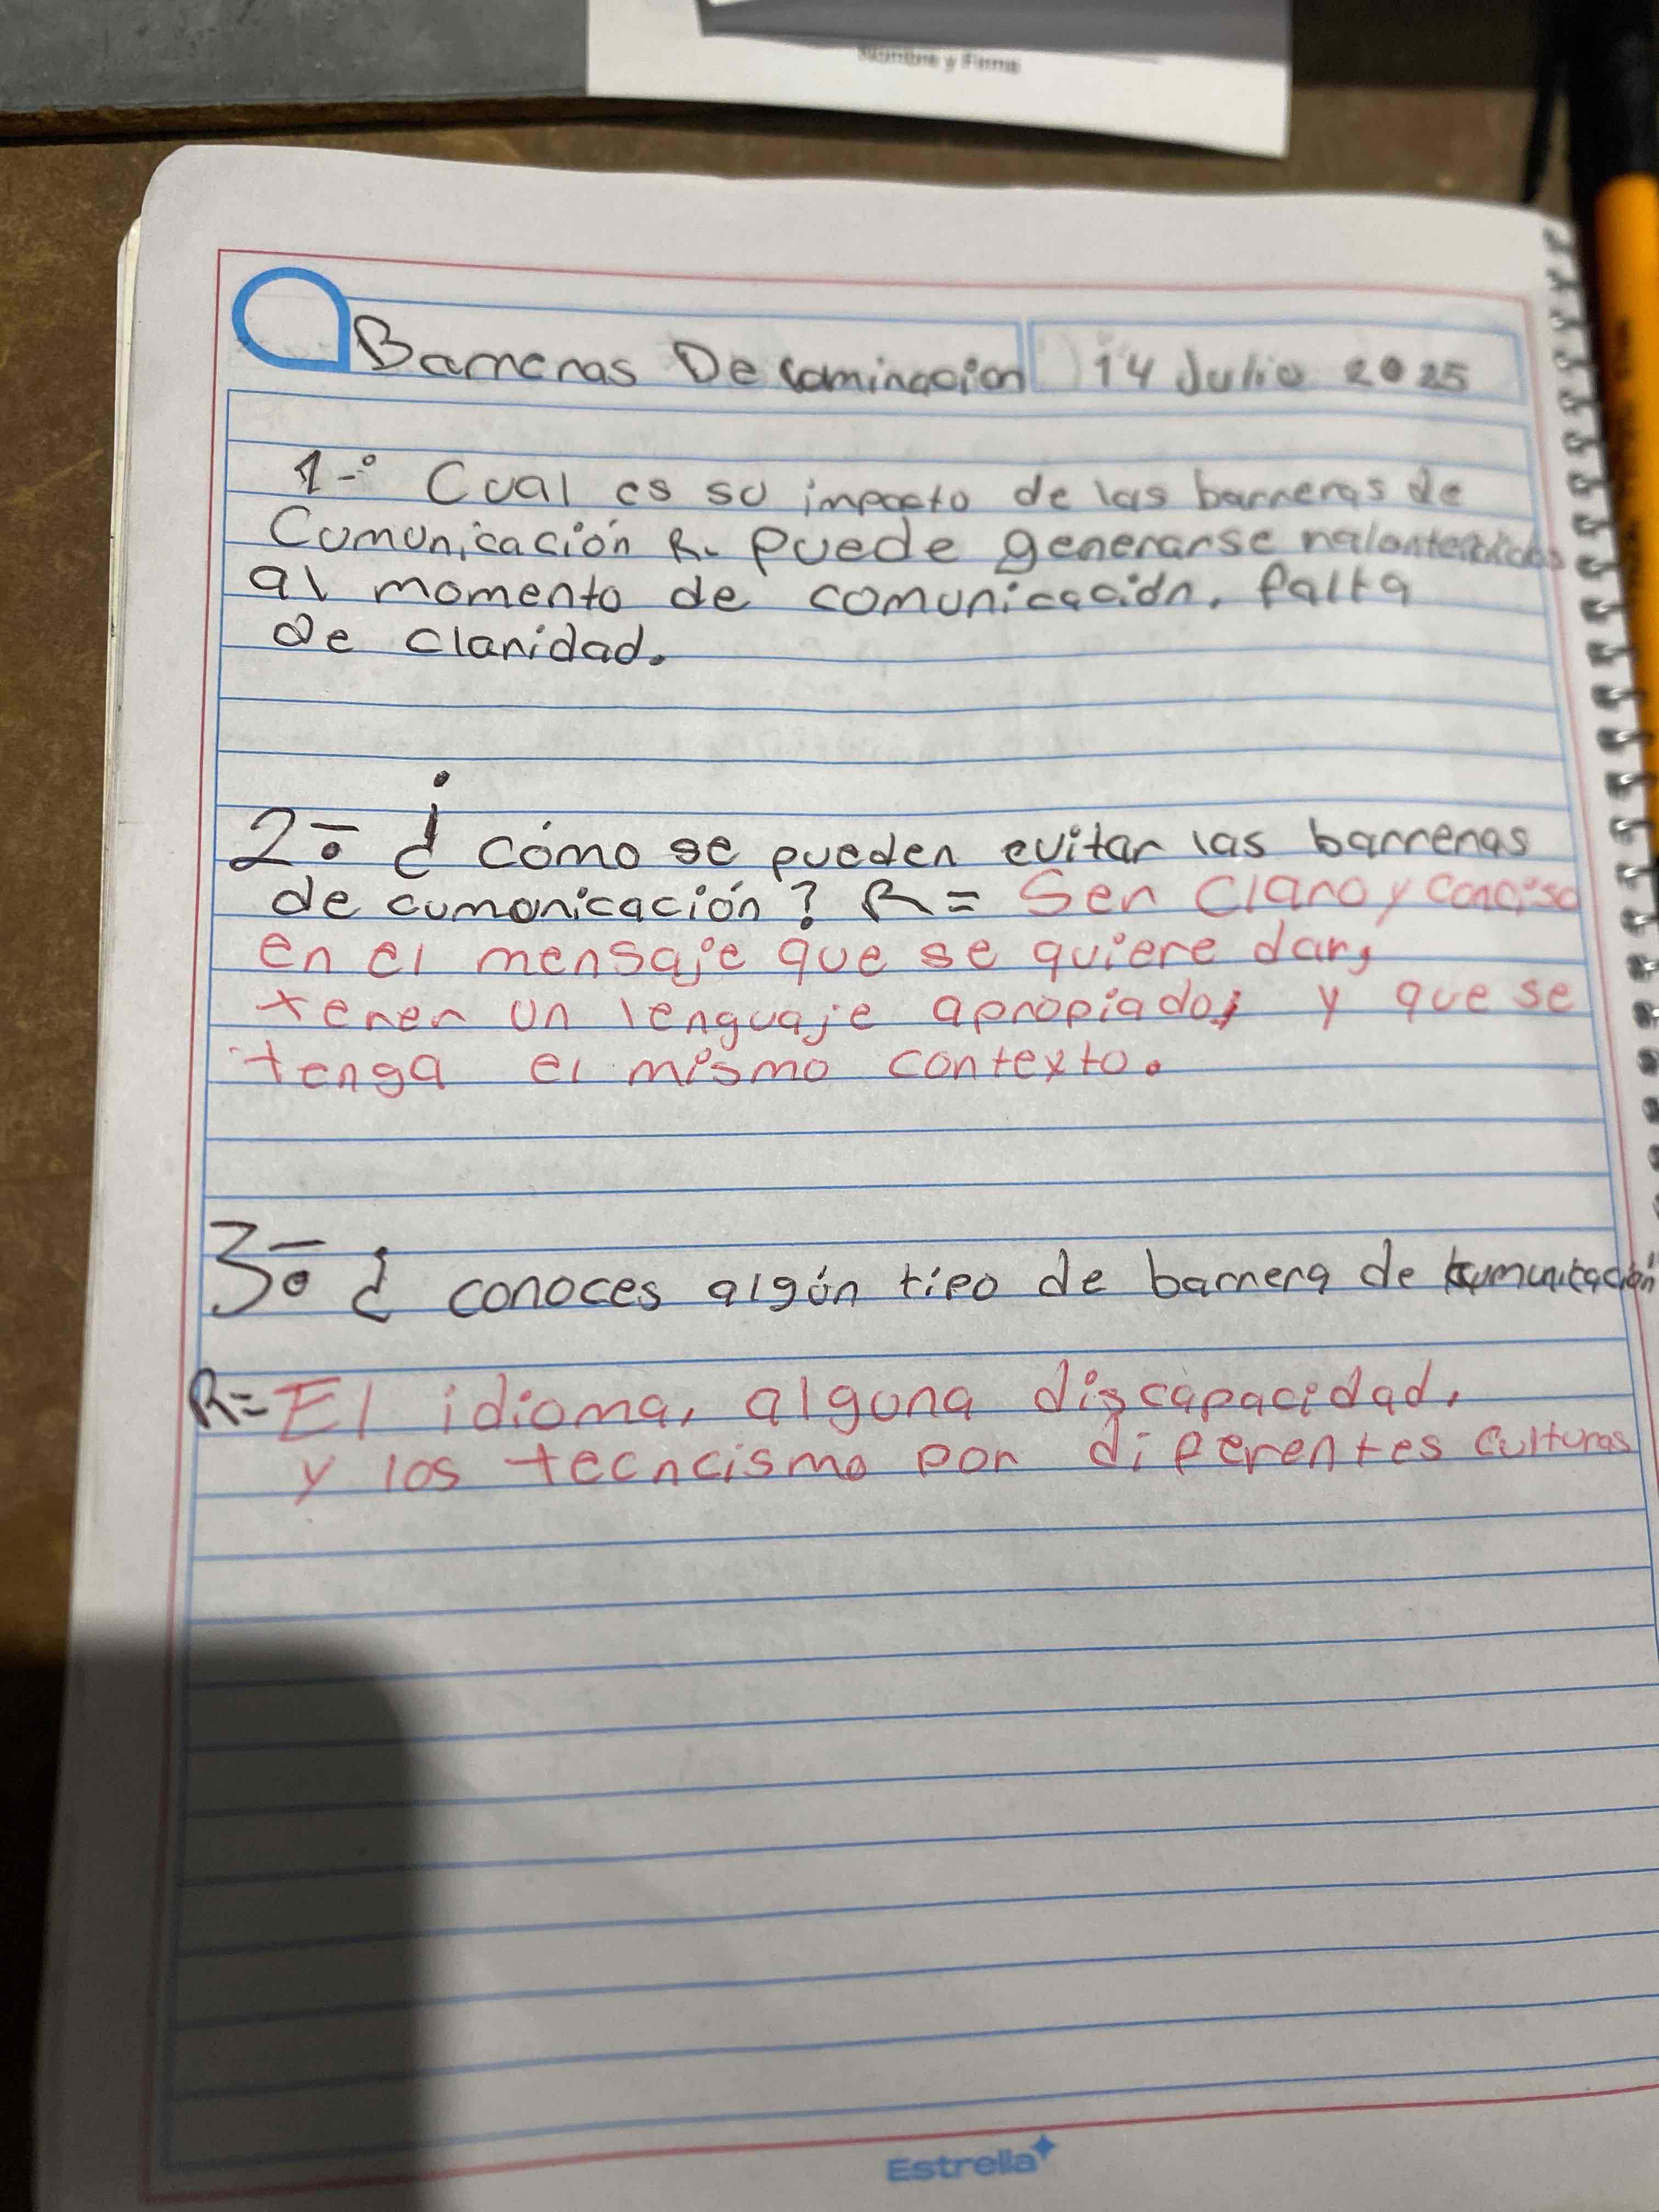 Nombre y Firma
Barreras De Cominacion 14 Julio 2025
1-° Cual es su impacto de las barreras de
Comunicación R- Puede generarse malentendidos
al momento de comunicación, falta
de claridad.
2-° ¿ cómo se pueden evitar las barreras
de cumonicación? R= Ser Claro y Conciso
en el mensaje que se quiere dar,
tener un lenguaje apropiado, y que se
tenga el mismo contexto.
3-° ¿ conoces algún tipo de barrera de cumunicación
R= El idioma, alguna discapacidad,
y los tecncismo por diferentes culturas
Estrella